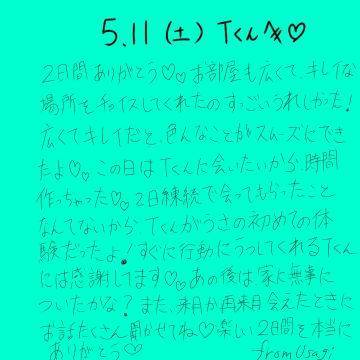 5.11 (土) Tくんへ♡
2日間ありがとう♡♡お部屋も広くて、キレイな
場所をチョイスしてくれたのすっごいうれしかった!
広くてキレイだと、色んなことがスムーズにでき
たよ♡♡この日はTくんに会いたいから、時間
作っちゃった♡♡2日練続で会ってもらったこと
なんてないから、Tくんがうさの初めての体
験だったよ!すぐに行動にうつしてくれるTくん
には感謝してます♡♡あの後は家に無事に
ついたかな?また、来月か再来月会えたときに
お話たくさん聞かせてね♡楽しい2日間を本当に
ありがとう♡ from Usagi